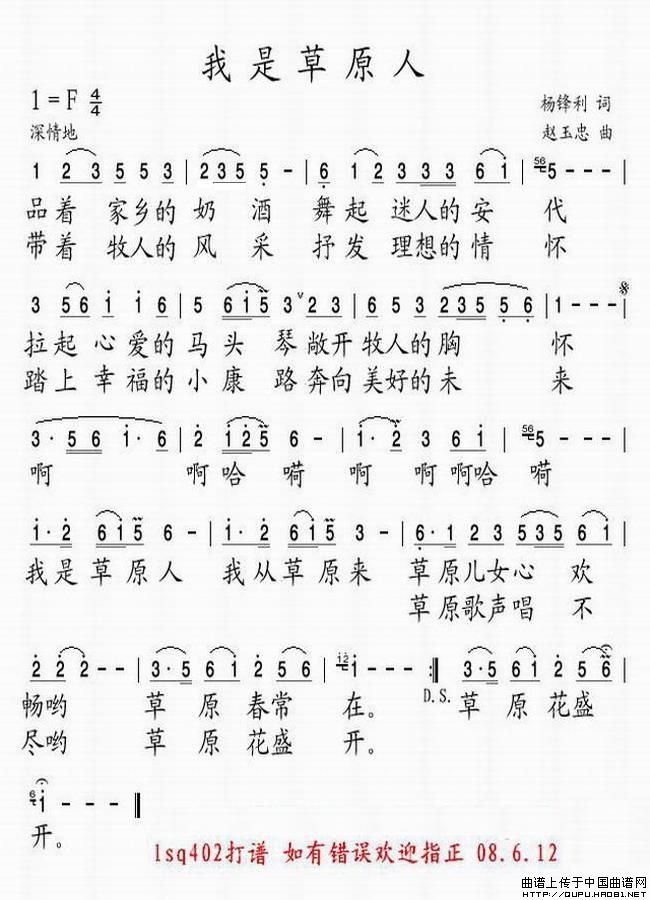 我是草原人
1=F 4/4
杨锋利 词
深情地
赵玉忠 曲
1 2 3 5 5 3 | 2 3 5 5 - | 6 1 2 3 3 3 6 1 | 56 5 - - |
品着 家乡的 奶 酒 舞起 迷人的 安 代
带着 牧人的 风 采 抒发 理想的 情 怀
3 5 6 i i 6 | 5 6 i 5 3 v 2 3 | 6 5 3 2 3 5 5 6 | 1 - - - |
拉起 心 爱的 马 头 琴 敞开 牧人的 胸 怀
踏上 幸 福的 小 康 路 奔向 美好的 未 来
3· 5 6 i· 6 | 2 i 2 5 6 - | i· 2 3 6 i | 56 5 - - |
啊 啊哈 嗬 啊 啊 啊哈 嗬
i· 2 6 i 5 6 - | i· 2 6 i 5 3 - | 6· 1 2 3 5 3 5 2 |
我是草原人 我从草原来 草原儿女心 欢
草原歌声唱 不
2 2 2 - - | 3· 5 6 i 2 5 6 | i2 i - - - :| 3· 5 6 i 2 5 6 |
D.S.
畅哟 草 原 春常 在。 草 原 花盛
尽哟 草 原 花盛 开。
6 i - - - ‖
开。
lsq402打谱 如有错误欢迎指正 08.6.12
曲谱上传于中国曲谱网
HTTP://QUPU.HAO81.NET